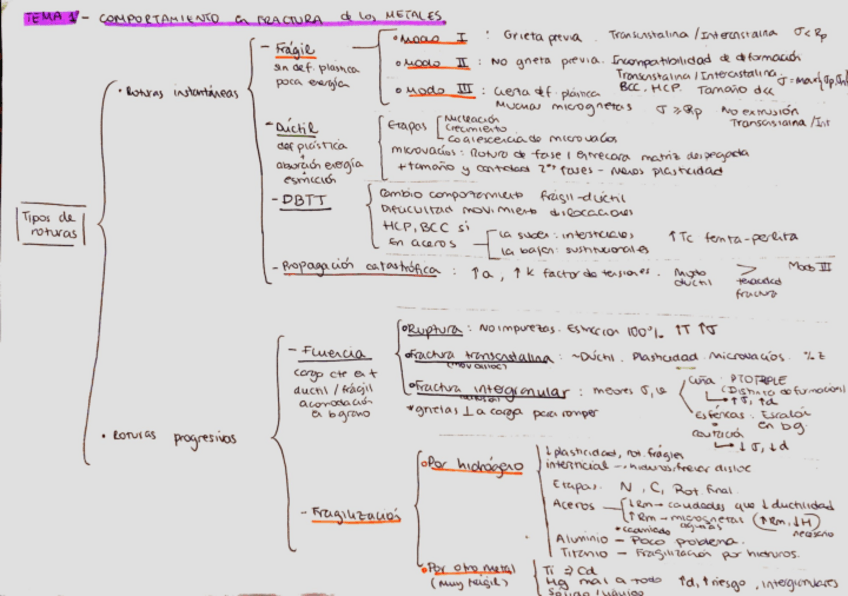 TEMA 1 - COMPORTAMIENTO en FRACTURA de los METALES.
Tipos de roturas
• Roturas instantáneas
- Frágil
sin def. plástica
poca energía
• Modo I : Grieta previa. Transcristalina / Intercristalina σ < Rp
• Modo II : No grieta previa. Incompatibilidad de deformación
Transcristalina / Intercristalina.
• Modo III : Cierta def. plástica BCC, HCP. Tamaño dcc
Muchas microgrietas σ ≥ Rp No extrusión
Transcristalina / Int
- Dúctil
def plástica
+
absorción energía
estricción
Etapas
Nucleación
Crecimiento
Coalescencia de microvacíos
microvacíos : Rotura de fase / entrecara matriz despegada
+ tamaño y cantidad 2as fases - menos plasticidad
- DBTT
Cambio comportamiento frágil-dúctil
Dificultad movimiento dislocaciones
HCP, BCC si
En aceros
La suben : intersticiales
La bajan : sustitucionales
↑ Tc ferrita-perlita
- Propagación catastrófica : ↑ a, ↑ k factor de tensiones.
Muy dúctil > tenacidad fractura
Modo III
• Roturas progresivas
- Fluencia
cargo cte en t
ductil / frágil
acomodación
en b grano
• Ruptura : No impurezas. Estricción 100%. ↑T ↑σ
• Fractura transcristalina : ~Dúctil. Plasticidad. Microvacíos. % z
• Fractura intergranular : menores σ,
* grietas ⊥ a carga para romper
Cuña : PTO TRIPLE
(Distinta deformación)
↑σ, ↑d
Esféricas : Escalón
en b.g.
cavitación
↓σ, ↓d
- Fragilización
• Por hidrógeno
↓ plasticidad, rot. frágiles
intersticial - hidruros, frenar disloc
Etapas. N, C, Rot. final.
Aceros
↓Rm - cavidades que ↓ ductilidad
↑Rm - microgrietas (↑Rm, ↓H)
necesario
Aluminio - Poco problema.
Titanio - Fragilización por hidruros.
• Por otro metal
(Muy frágil)
Ti ⇒ Cd
Hg mal a todo ↑d, ↑riesgo, intergranulares
Sólido / líquido